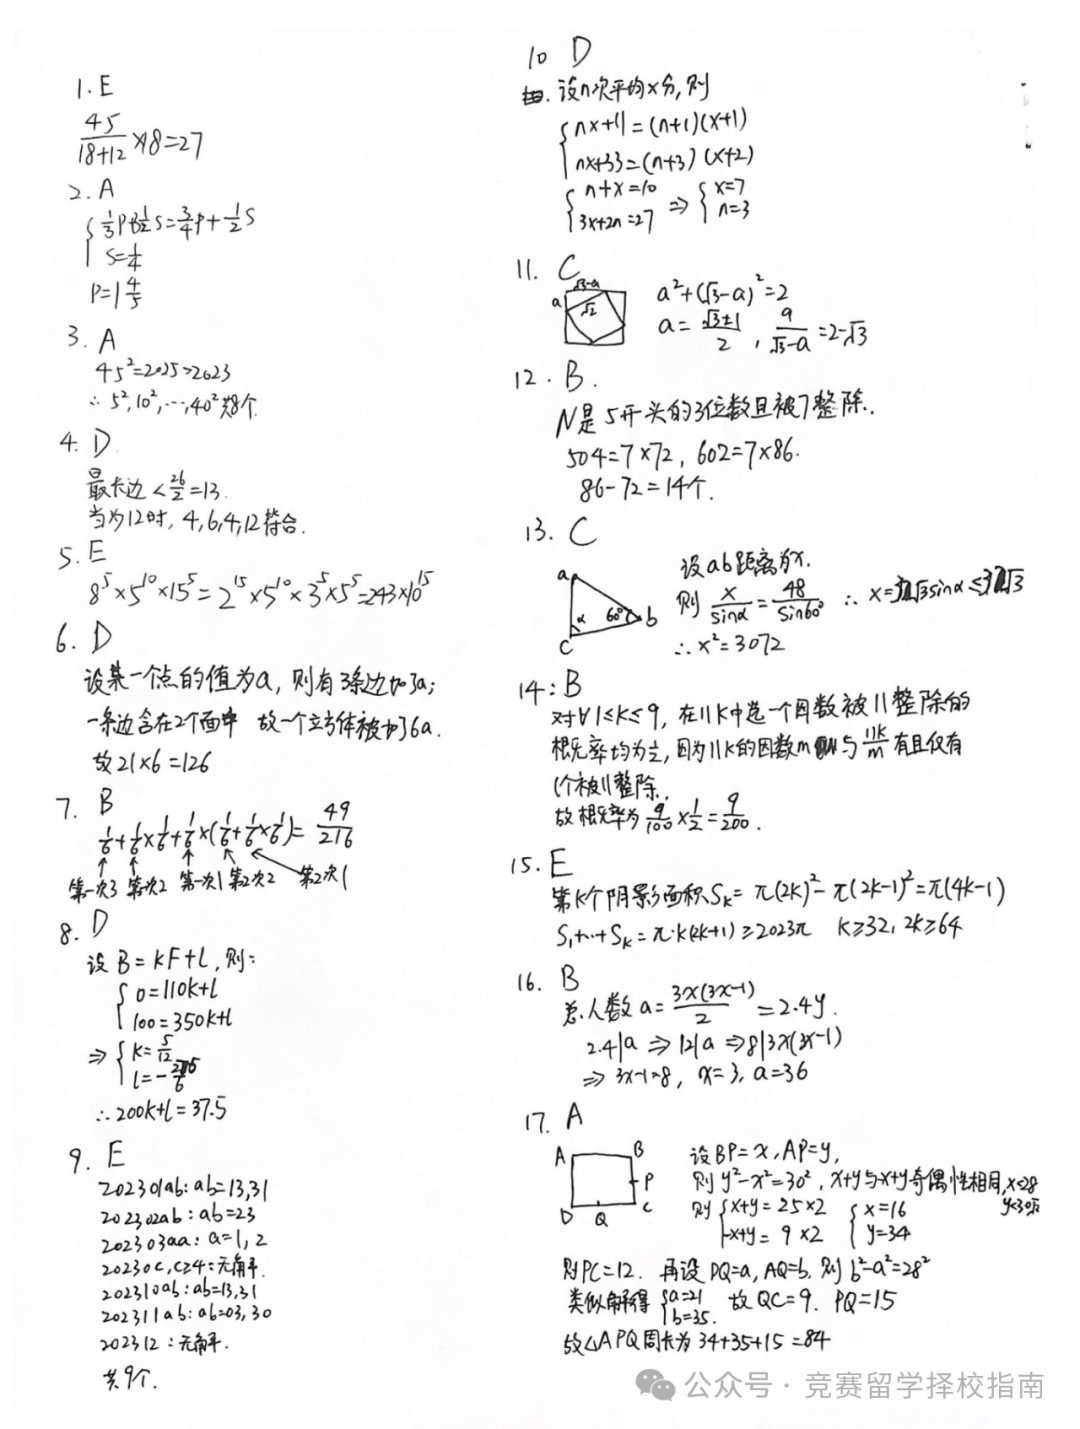 1. E
45/(18+12) ×18=27
2. A
{ 1/3P+ 1/2S=3/4P+1/2S
S=1/4
P=1 4/5
3. A
45²=2025>2023
∴ 5²,10²,…,40²共8个.
4. D.
最长边<26/2=13.
当为12时, 4,6,4,12符合.
5. E
8⁵×5¹⁰×15⁵=2¹⁵×5¹⁰×3⁵×5⁵=243×10¹⁵
6. D
设某一个点的值为a, 则有3条边加3a;
一条边含在2个面中 故一个立方体被加6a.
故21×6=126
7. B
1/6+1/6×1/6+1/6×(1/6+1/6×1/6)=49/216
第一次3 第一次2 第一次1 第2次2 第2次1
8. D
设B=kF+l,则:
{ 0=110k+l
100=350k+l
⇒ { k=5/12
l=-
∴200k+l=37.5
9. E
202301ab: ab=13,31
202302ab: ab=23
202303aa: a=1, 2
20230c,c≥4:无解.
202310ab: ab=13,31
202311ab: ab=03,30
202312:无解.
共9个.
10 D
设n次平均x分,则
{ nx+11=(n+1)(x+1)
nx+33=(n+3)(x+2)
{ n+x=10
3x+2n=27 ⇒ { x=7
n=3
11. C
√3-a
a √2
a²+(√3-a)²=2
a=(√3±1)/2 , a/(√3-a)=2-√3
12. B.
N是5开头的3位数且被7整除.
504=7×72, 602=7×86.
86-72=14个.
13. C
a α 60° b c
设ab距离为x.
则 x/sinα=48/sin60° ∴ x=32√3sinα≤32√3
∴x²=3072
14: B
对∀1≤k≤9, 在11k中选一个因数被11整除的
概率均为1/2, 因为11k的因数m与11k/m有且仅有
1个被11整除.
故概率为9/100×1/2=9/200.
15. E
第k个阴影面积Sk=π(2k)²-π(2k-1)²=π(4k-1)
S₁+…+Sk=π·k(2k+1)≥2023π k≥32, 2k≥64
16. B
总人数a=3x(3x-1)/2=2.4y.
2.4|a ⇒12|a ⇒8|3x(3x-1)
⇒3x-1=8, x=3, a=36
17. A
A B P C Q D
设BP=x, AP=y,
则y²-x²=30², x+y与x+y奇偶性相同, x≤28
则 { x+y=25×2
-x+y=9×2
{ x=16
y=34
则PC=12. 再设DQ=a, AQ=b, 则b²-a²=28²
类似解得 { a=21
b=35. 故QC=9. PQ=15
故△APQ周长为34+35+15=84
公众号·竞赛留学择校指南